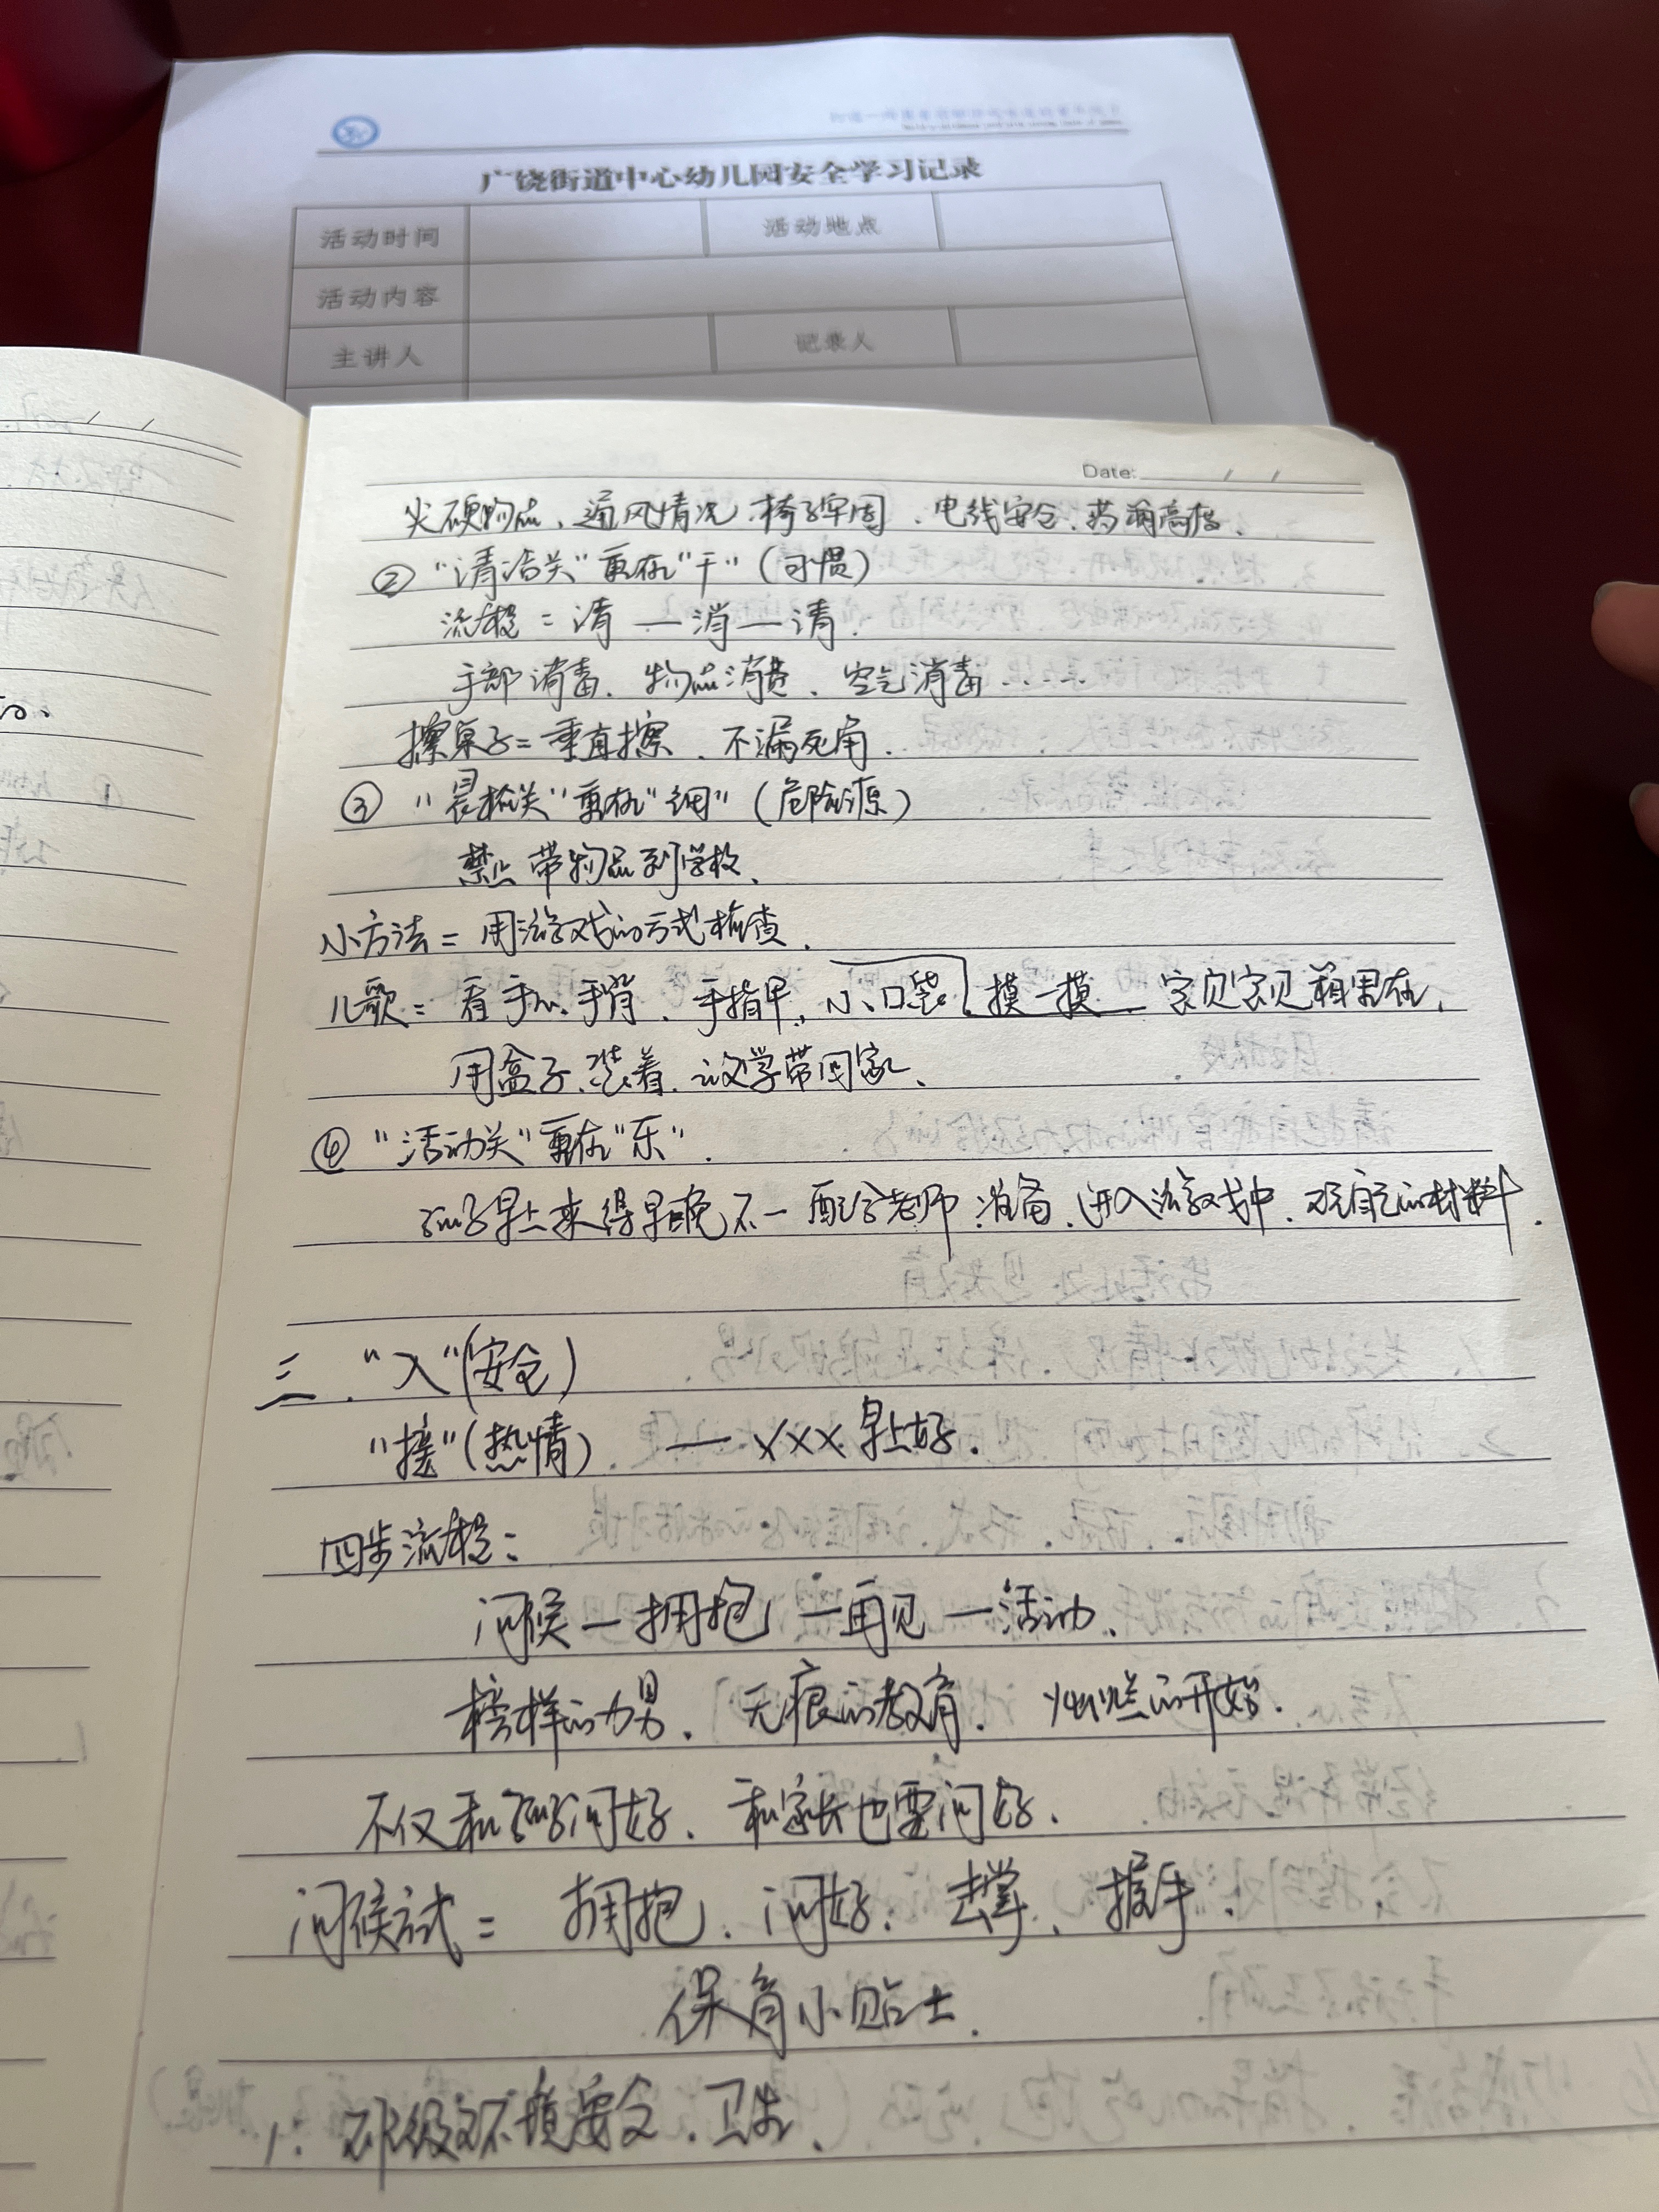 广饶街道中心幼儿园安全学习记录
活动时间 活动地点
活动内容
主讲人 记录人
Date: / /
尖硬物品、通风情况、椅子牢固、电线安全、药荫高档、
② “清洁关”重在“干”(习惯)
流程=清—消—清.
手部消毒、物品消费、空气消毒......
擦桌子=垂直擦、不漏死角.
③ “晨检关”重在“细”(危险源)
禁止带物品到学校、
小方法=用游戏的方式检查.
儿歌=看手心、手背、手指甲、小口袋摸一摸 宝贝宝贝
用盒子装着、放学带回家、
④ “活动关”重在“乐”.
孩子早上来得早晚不一 配合老师准备、进入游戏中、的材料.
三、“入”(安全)
“接”(热情) — XXX早上好.
四步流程:
问候—拥抱—再见—活动、
榜样的力男、无痕的教育、灿烂的开始.
不仅和孩子问好、和家长也要问好.
问候方式=拥抱、问好、击掌、握手.
保育小贴士.
1. 班级环境安全、卫生、